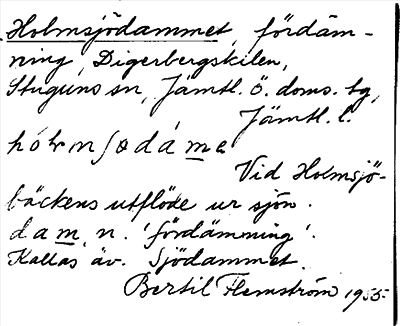 Holmsjödammet, fördäm-
ning, Digerbergskilen,
Stuguns sn, Jämtl. ö. doms. tg,
Jämtl. l.
Vid Holmsjö-
bäckens utflöde ur sjön.
dam, n. 'fördämning'.
Kallas äv. Sjödammet.
Bertil Flemström 1955.